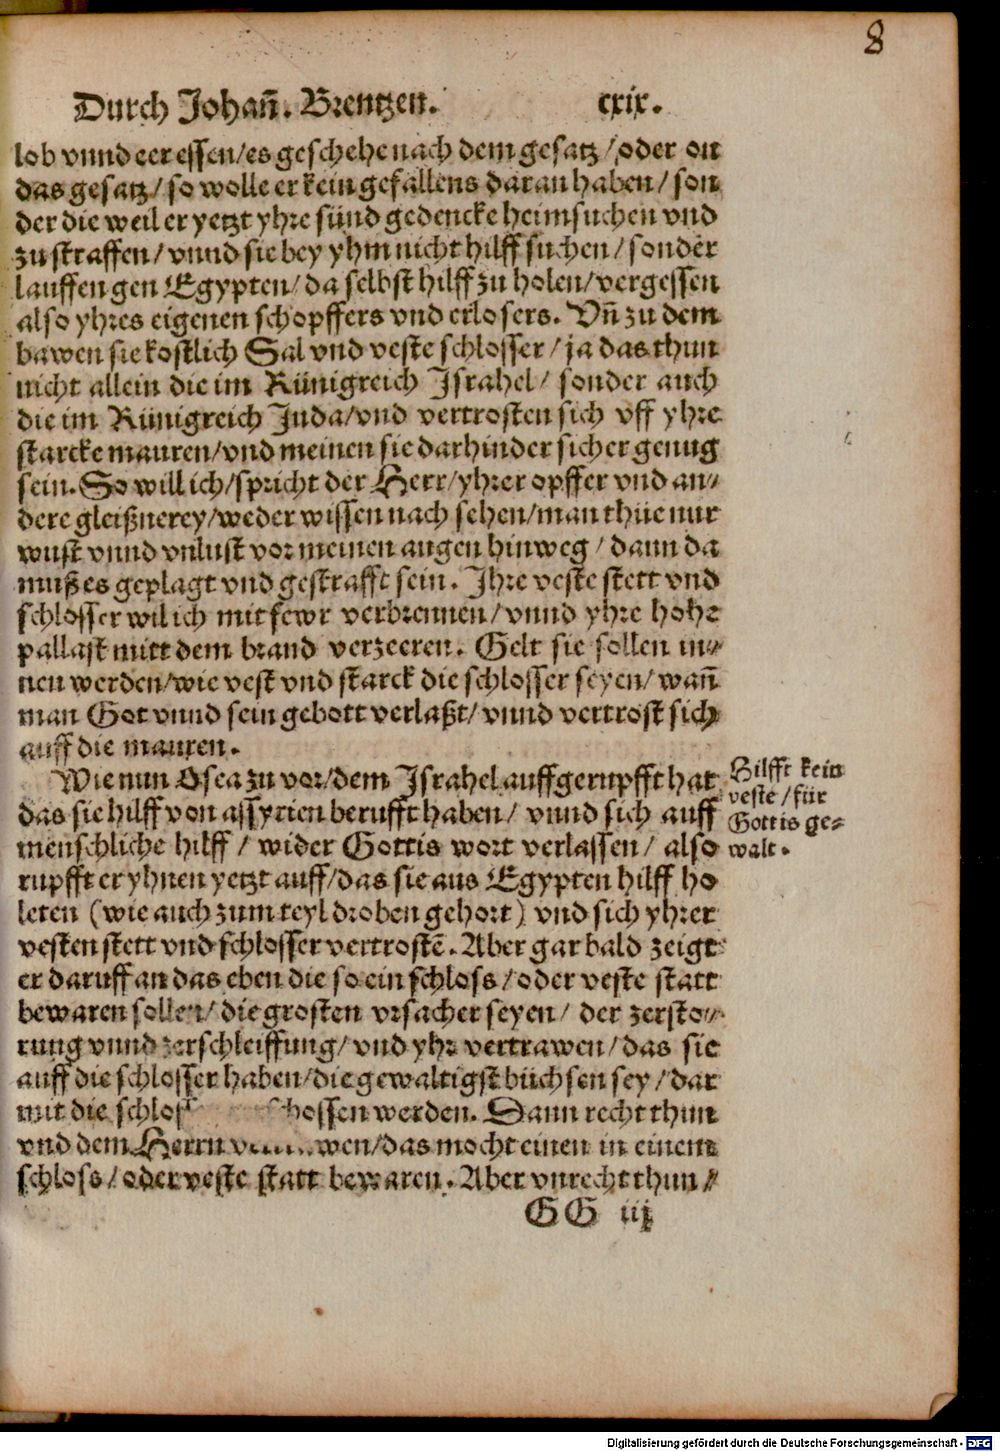 8
Durch Johañ. Brentzen. cxix.
lob vnnd eer essen/es geschehe nach dem gesatz/oder on
das gesatz/so wolle er kein gefallens daran haben/son
der die weil er yetzt yhre sünd gedencke heimsuchen vnd
zu straffen/vnnd sie bey yhm nicht hilff suchen/sonder
lauffen gen Egypten/da selbst hilff zu holen/vergessen
also yhres eigenen schopffers vnd erlosers. Vñ zu dem
bawen sie kostlich Sal vnd veste schlosser/ja das thun
nicht allein die im Künigreich Israhel/ sonder auch
die im Künigreich Juda/vnd vertrosten sich vff yhre
starcke mauren/vnd meinen sie darhinder sicher genug
sein. So will ich/spricht der Herr/yhrer opffer vnd an⸗
dere gleißnerey/weder wissen nach sehen/man thüe nur
wust vnnd vnlust vor meinen augen hinweg/dann da
muß es geplagt vnd gestrafft sein. Ihre veste stett vnd
schlosser wil ich mit fewr verbrennen/vnnd yhre hohe
pallast mitt dem brand verzeeren. Gelt sie sollen in⸗
nen werden/wie vest vnd starck die schlosser seyen/wañ
man Got vnnd sein gebott verlaßt/vnnd vertrost sich
auff die mauren.
Wie nun Osea zu vor/dem Israhel auffgerupfft hat
das sie hilff von assyrien berufft haben/ vnnd sich auff
menschliche hilff/ wider Gottis wort verlassen/ also
rupfft er yhnen yetzt auff/das sie aus Egypten hilff ho
leten (wie auch zum teyl droben gehort) vnd sich yhrer
vesten stett vnd schlosser vertrostē. Aber gar bald zeigt
er daruff an das eben die so ein schloss/oder veste statt
bewaren sollen/die grosten vrsacher seyen/ der zersto⸗
rung vnnd zerschleiffung/vnd yhr vertrawen/das sie
auff die schlosser haben/die gewaltigst büchsen sey/dar
mit die schlos hossen werden. Dann recht thun
vnd dem Herrn wen/das mocht einen in einem
schloss/oder veste statt bewaren. Aber vnrecht thun⸗
GG iij
Hilfft kein
veste/für
Gottis ge⸗
walt.
Digitalisierung gefördert durch die Deutsche Forschungsgemeinschaft - DFG